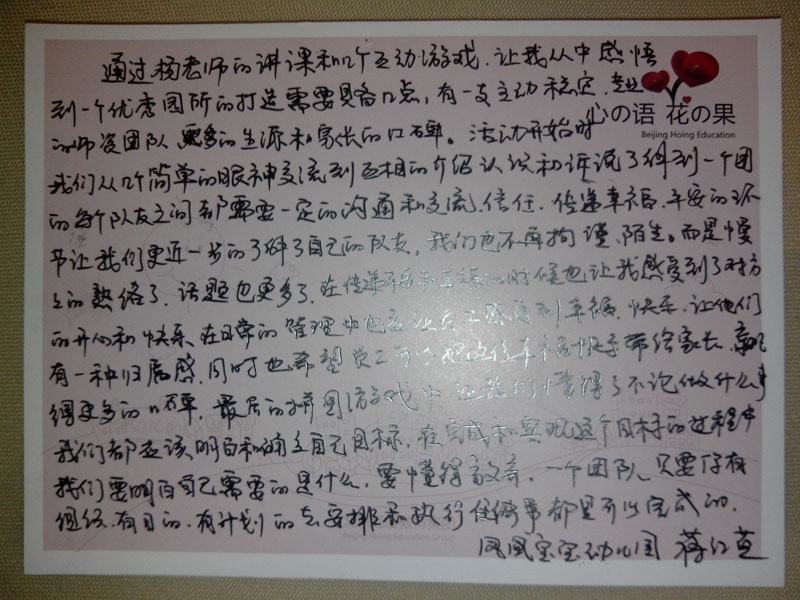 通过杨老师的讲课和几个互动游戏,让我从中感悟
到一个优秀园所的打造需要具备几点,有一支主动稳定、专业
的师资团队 更多的生源和家长的口碑。活动开始时
心の语 花の果
Beijing Hoing Education
我们从几个简单的眼神交流到互相的介绍认识和诉说了解到一个团
的每个队友之间都需要一定的沟通和交流、信任、传递幸福、平安的环
节让我们更近一步的了解了自己的队友,我们也不再拘谨、陌生。而是慢
之的熟络了,话题也更多了,在传递的时候也让我感受到了对方
的开心和快乐 在日常的管理中也应让员工感受到幸福、快乐,让他们
有一种归属感,同时也希望员工可以把这份幸福快乐带给家长,赢
得更多的口碑,最后的拼图游戏中让我们懂得了不论做什么事
我们都应该明白和确立自己目标,在完成和实现这个目标的过程中
我们要明白自己需要的是什么,要懂得,一个团队,只要
组织、有目的、有计划的去安排和执行任何事都是可以完成的.
Beijing Hoing Education Group
凤凰宝宝幼儿园 蒋红英